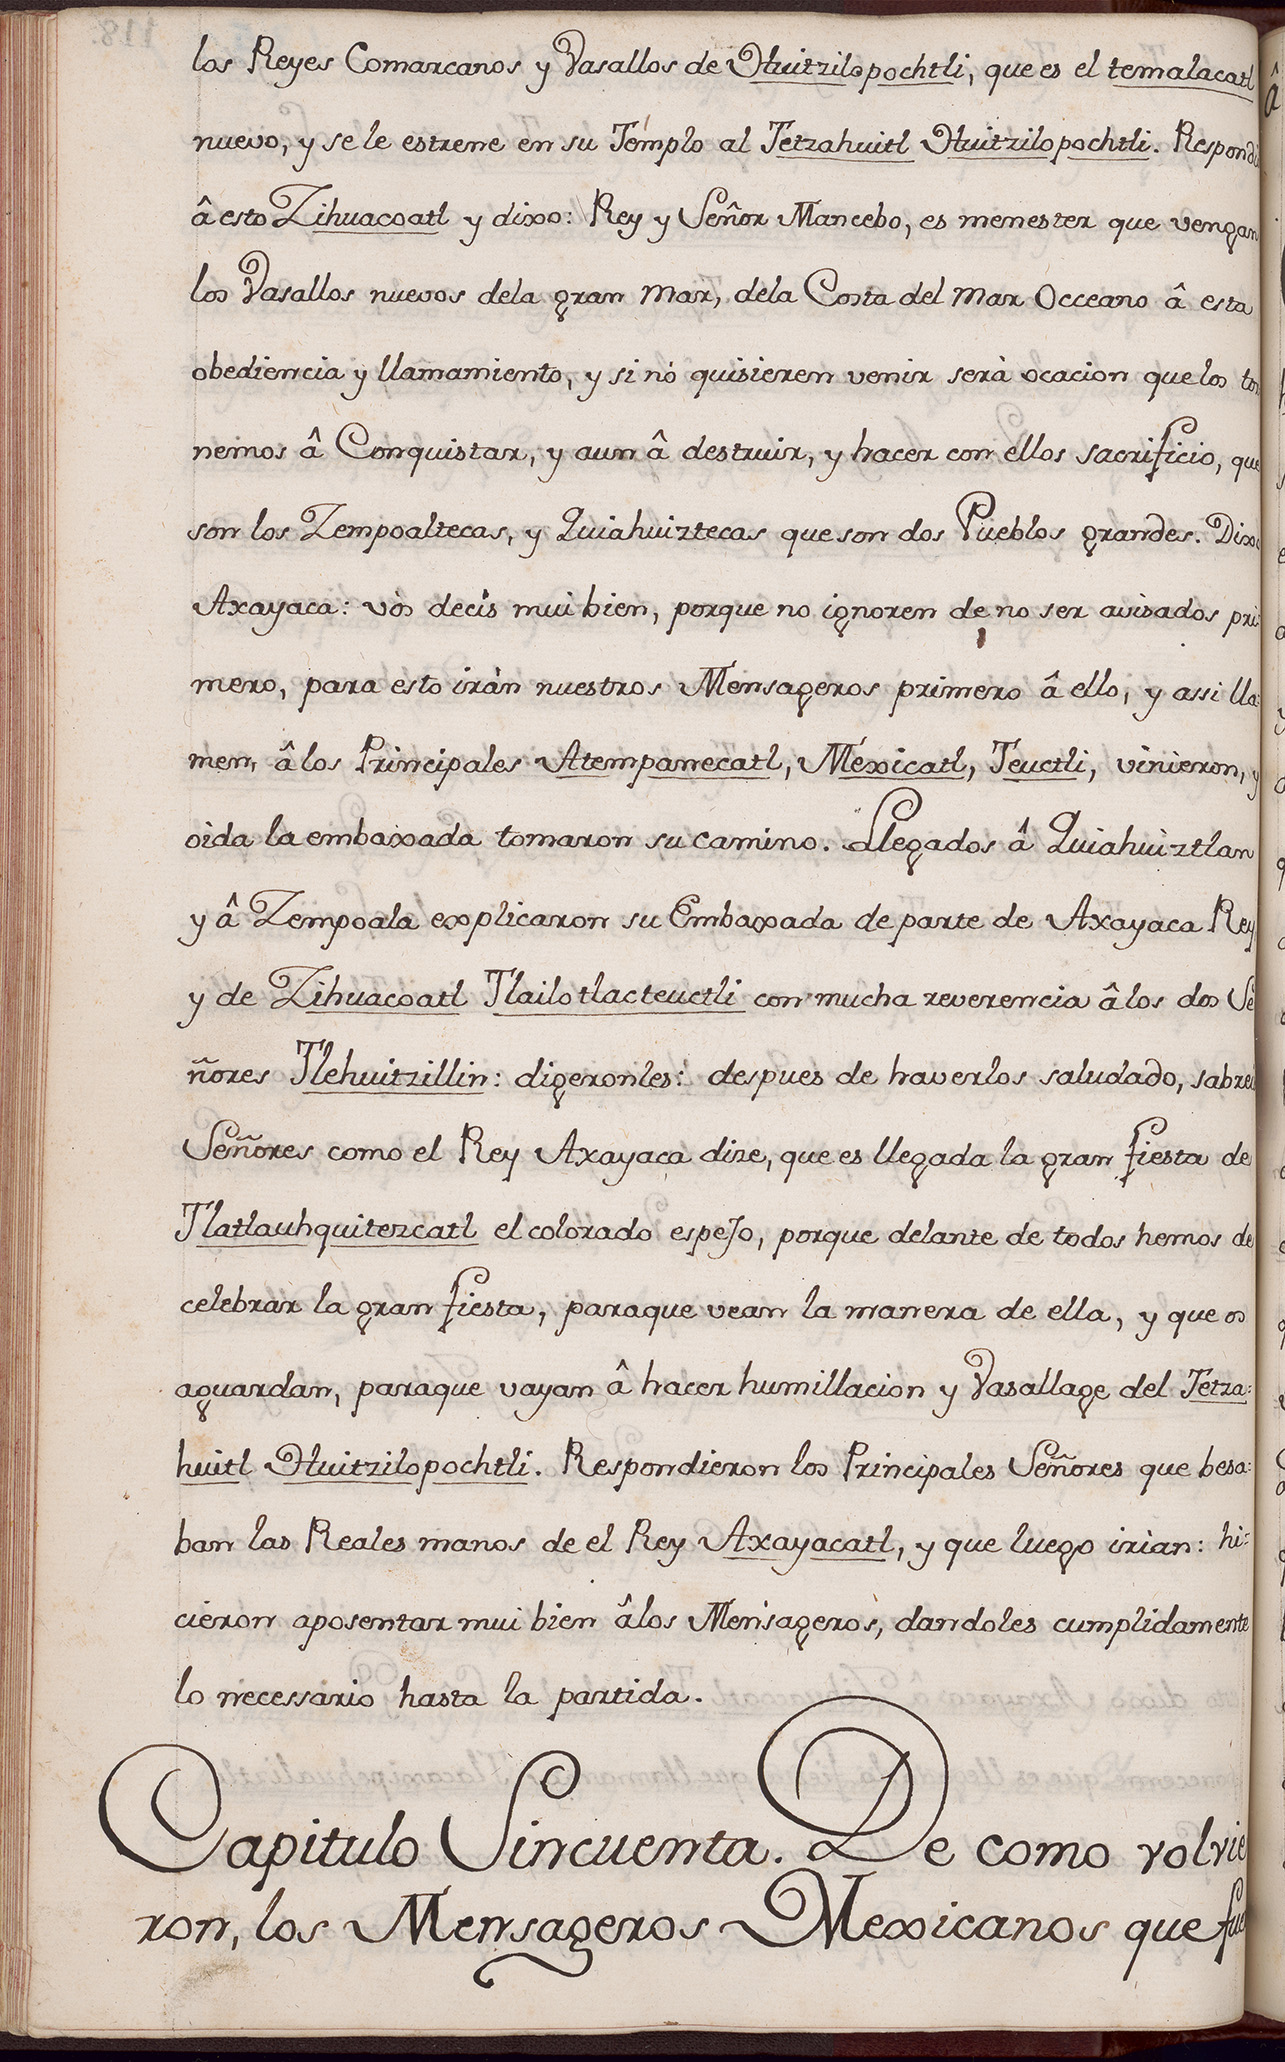 los Reyes Comarcanos y Vasallos de Huitzilopochtli, que es el temalacatl
nuevo, y se le estrene en su Templo al Tetzahuitl Huitzilopochtli. Respondi
â esto Zihuacoatl y dixo: Rey y Señor Mancebo, es menester que vengan
los Vasallos nuevos dela gran Mar, dela Costa del Mar Occeano â esta
obediencia y llamamiento, y si nó quisieren venir serà ocacion que los tor
nemos â Conquistar, y aun â destruir, y hacer con ellos sacrificio, que
son los Zempoaltecas, y Quiahuiztecas que son dos Pueblos grandes. Dixo
Axayaca: vòs decís mui bien, porque no ignoren de no ser avisados pri
mero, para esto iràn nuestros Mensageros primero â ello, y assi lla:
men, â los Principales Atempanecatl, Mexicatl, Teuctli, vinieron, y
oida la embaxada tomaron su camino. Llegados â Quiahuiztlan
y â Zempoala explicaron su Embaxada de parte de Axayaca Rey
y de Zihuacoatl Tlailotlacteuctli con mucha reverencia â los dos Se
ñores Tlehuitzillin: digeronles: despues de haverlos saludado, sabrei
Señores como el Rey Axayaca dize, que es llegada la gran fiesta de
Tlatlauhquitezcatl el colorado espejo, porque delante de todos hemos de
celebrar la gran fiesta, paraque vean la manera de ella, y que os
aguardan, paraque vayan â hacer humillacion y Vasallage del Tetza:
huitl Huitzilopochtli. Respondieron los Principales Señores que besa:
ban las Reales manos de el Rey Axayacatl, y que luego irian: hi:
cieron aposentar mui bien âlos Mensageros, dandoles cumplidamente
lo necessario hasta la partida.
Capitulo Sincuenta. De como volvie
ron, los Mensageros Mexicanos que fue